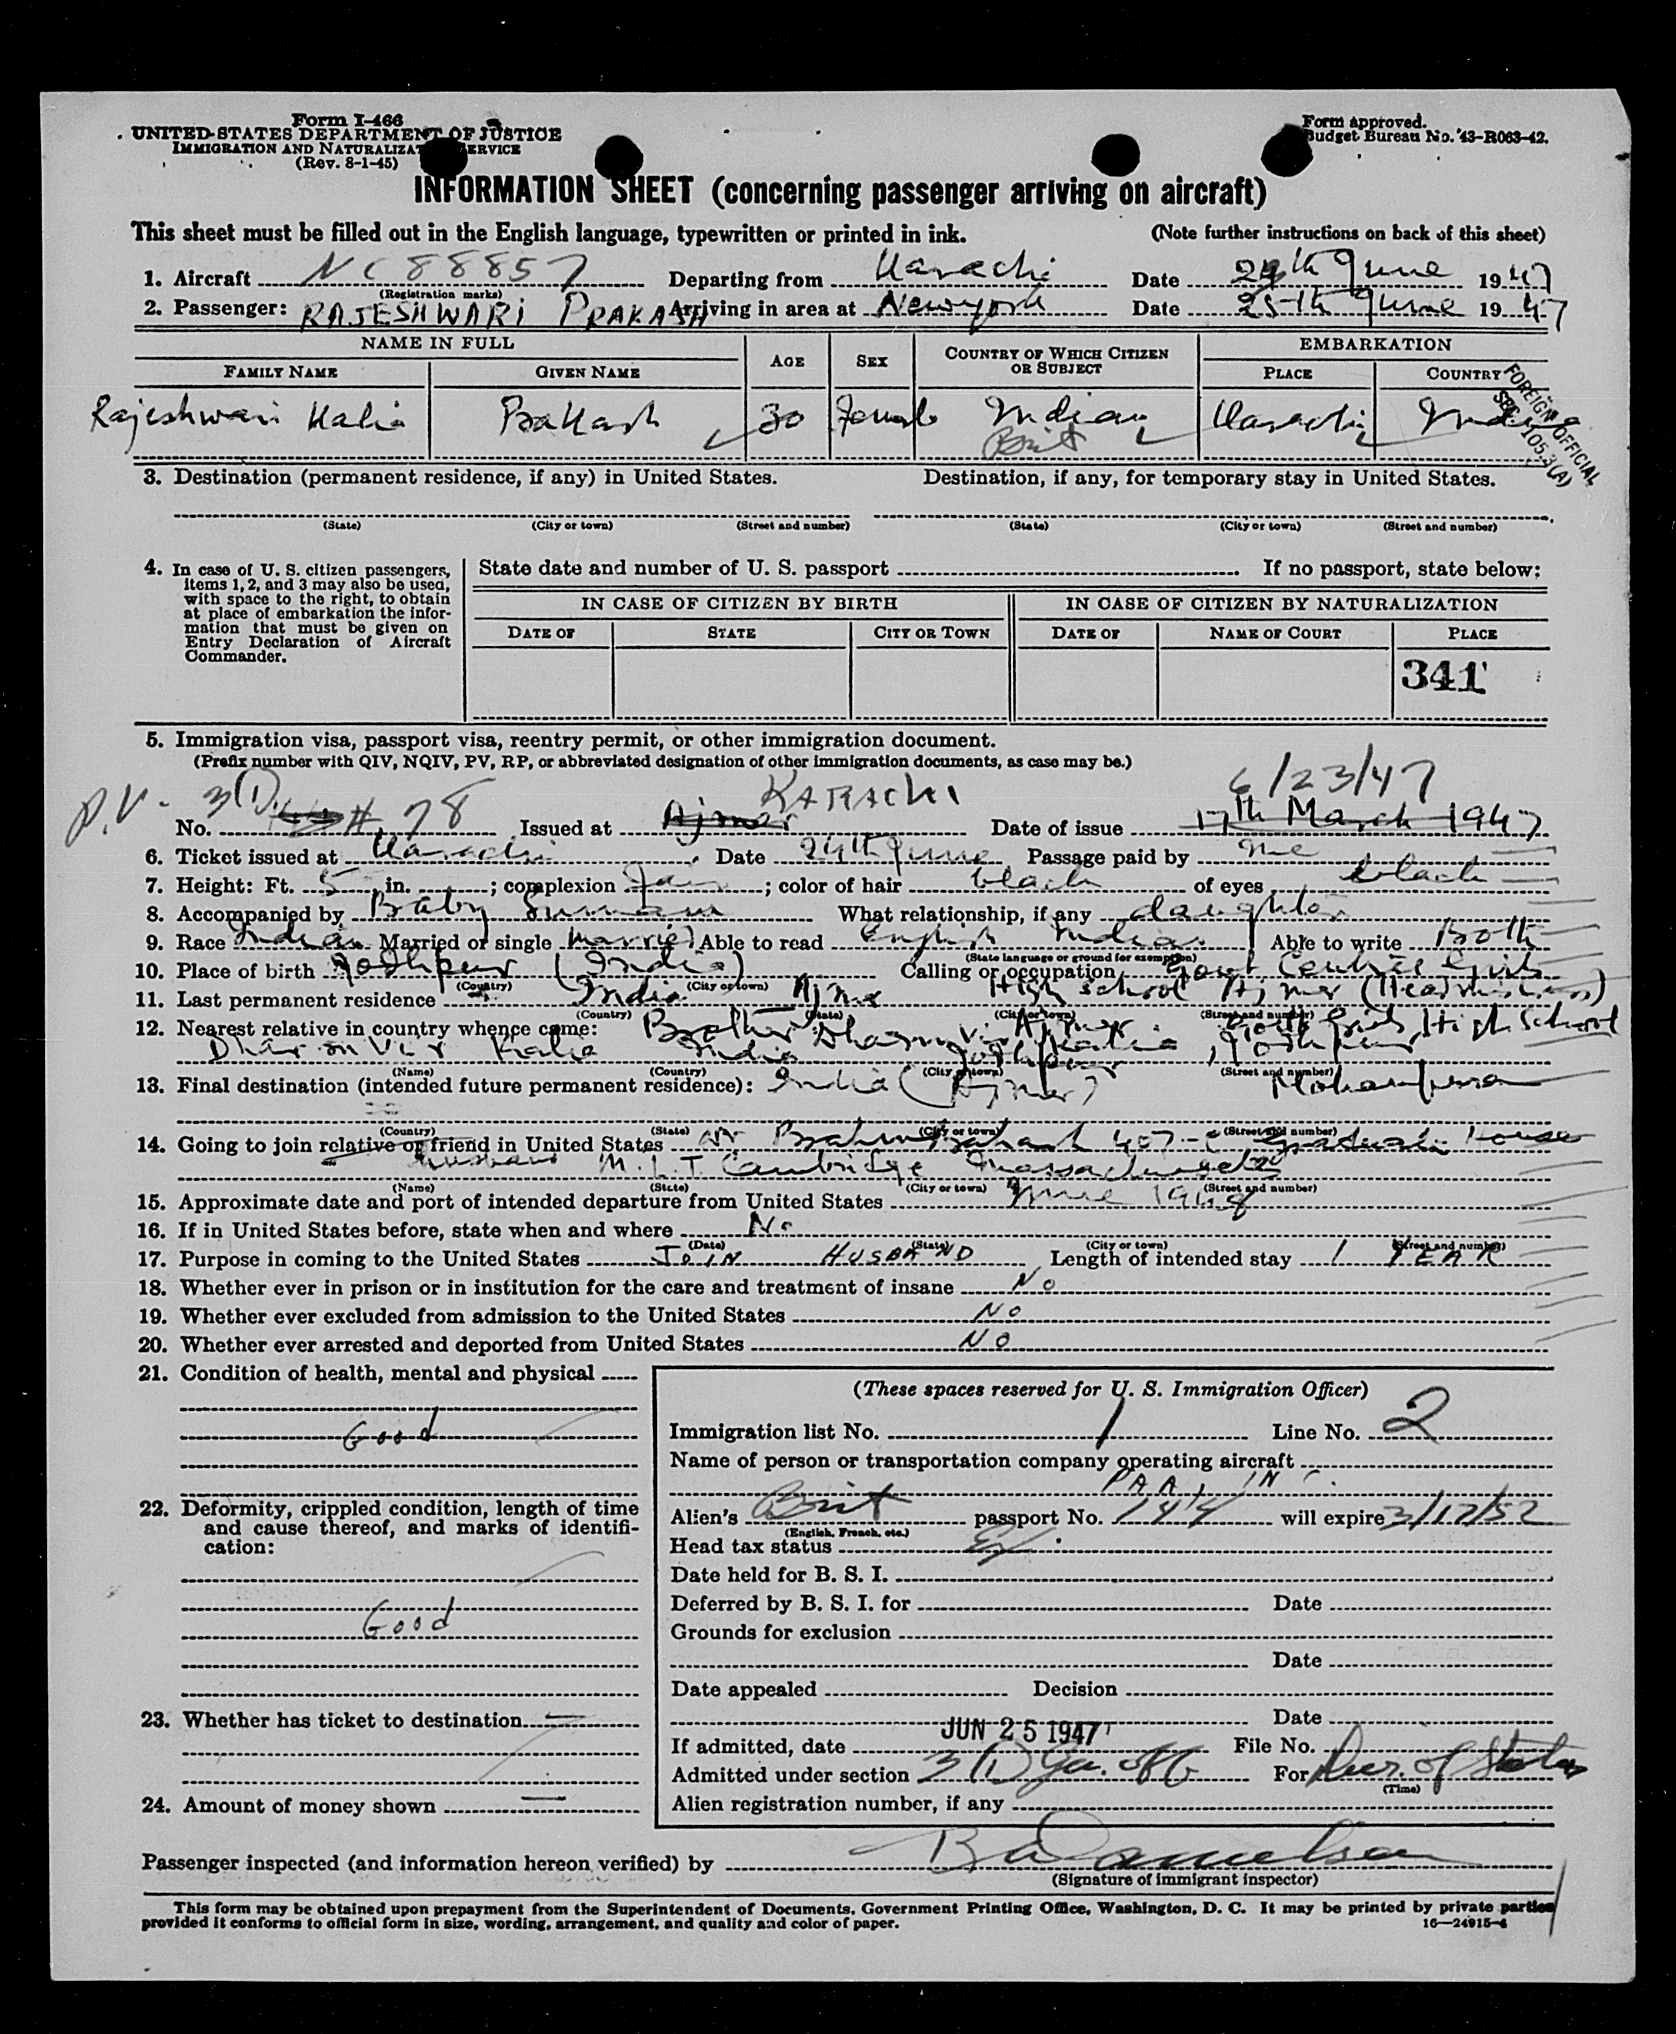 Form I-466
UNITED STATES DEPARTMENT OF JUSTICE
IMMIGRATION AND NATURALIZATION SERVICE
(Rev. 8-1-45)
Form approved.
Budget Bureau No. 43-R063-42.
INFORMATION SHEET (concerning passenger arriving on aircraft)
This sheet must be filled out in the English language, typewritten or printed in ink. (Note further instructions on back of this sheet)
1. Aircraft NC 88857 Departing from Karachi Date 24th June 1947
(Registration marks)
2. Passenger: RAJESHWARI PRAKASH Arriving in area at Newyork Date 25th June 1947
NAME IN FULL AGE SEX COUNTRY OF WHICH CITIZEN OR SUBJECT EMBARKATION
FAMILY NAME GIVEN NAME PLACE COUNTRY
Rajeshwari Kalia Prakash 30 Female Indian Karachi India
Brit
FOREIGN OFFICIAL
SEC. 10 53(A)
3. Destination (permanent residence, if any) in United States. Destination, if any, for temporary stay in United States.
(State) (City or town) (Street and number) (State) (City or town) (Street and number)
4. In case of U. S. citizen passengers,
items 1, 2, and 3 may also be used,
with space to the right, to obtain
at place of embarkation the infor-
mation that must be given on
Entry Declaration of Aircraft
Commander.
State date and number of U. S. passport If no passport, state below:
IN CASE OF CITIZEN BY BIRTH IN CASE OF CITIZEN BY NATURALIZATION
DATE OF STATE CITY OR TOWN DATE OF NAME OF COURT PLACE
341
5. Immigration visa, passport visa, reentry permit, or other immigration document.
(Prefix number with QIV, NQIV, PV, RP, or abbreviated designation of other immigration documents, as case may be.)
P.V. 3(1) KARACHI 6/23/47
No. # 78 Issued at Ajmer Date of issue 17th March 1947
6. Ticket issued at Karachi Date 24th June Passage paid by me
7. Height: Ft. 5 in. ; complexion Fair ; color of hair black of eyes black
8. Accompanied by Baby Suman What relationship, if any daughter
9. Race Indian Married or single Married Able to read English Indian Able to write Both
(State language or ground for exemption)
10. Place of birth Jodhpur (India) Calling or occupation Govt Central Girls
(Country) (City or town)
High school Ajmer (Headmistress)
11. Last permanent residence India Ajmer
(Country) (State) (City or town) (Street and number)
12. Nearest relative in country whence came: Brother Dharmvir Kalia, Jodhpur
Dharmvir Kalia India Jodhpur
(Name) (Country) (City or town) (Street and number)
13. Final destination (intended future permanent residence): India (Ajmer)
(Country) (State) (City or town) (Street and number)
14. Going to join relative or friend in United States 407-C Graduate House
husband M.I.T. Cambridge Massachusetts
(Name) (State) (City or town) (Street and number)
15. Approximate date and port of intended departure from United States June 1948
16. If in United States before, state when and where No
(Date) (State) (City or town) (Street and number)
17. Purpose in coming to the United States JOIN HUSBAND Length of intended stay 1 YEAR
18. Whether ever in prison or in institution for the care and treatment of insane NO
19. Whether ever excluded from admission to the United States NO
20. Whether ever arrested and deported from United States NO
21. Condition of health, mental and physical
Good
22. Deformity, crippled condition, length of time
and cause thereof, and marks of identifi-
cation:
Good
23. Whether has ticket to destination —
24. Amount of money shown —
(These spaces reserved for U. S. Immigration Officer)
Immigration list No. 1 Line No. 2
Name of person or transportation company operating aircraft
PAA, INC.
Alien's Brit passport No. 1414 will expire 3/17/52
(English, French, etc.)
Head tax status Ex.
Date held for B. S. I.
Deferred by B. S. I. for Date
Grounds for exclusion
Date
Date appealed Decision
Date
If admitted, date JUN 25 1947 File No.
Admitted under section 3(1) Gov. off For Dur. of Status
(Time)
Alien registration number, if any
Passenger inspected (and information hereon verified) by
(Signature of immigrant inspector)
This form may be obtained upon prepayment from the Superintendent of Documents, Government Printing Office, Washington, D. C. It may be printed by private parties
provided it conforms to official form in size, wording, arrangement, and quality and color of paper. 16—24915-4